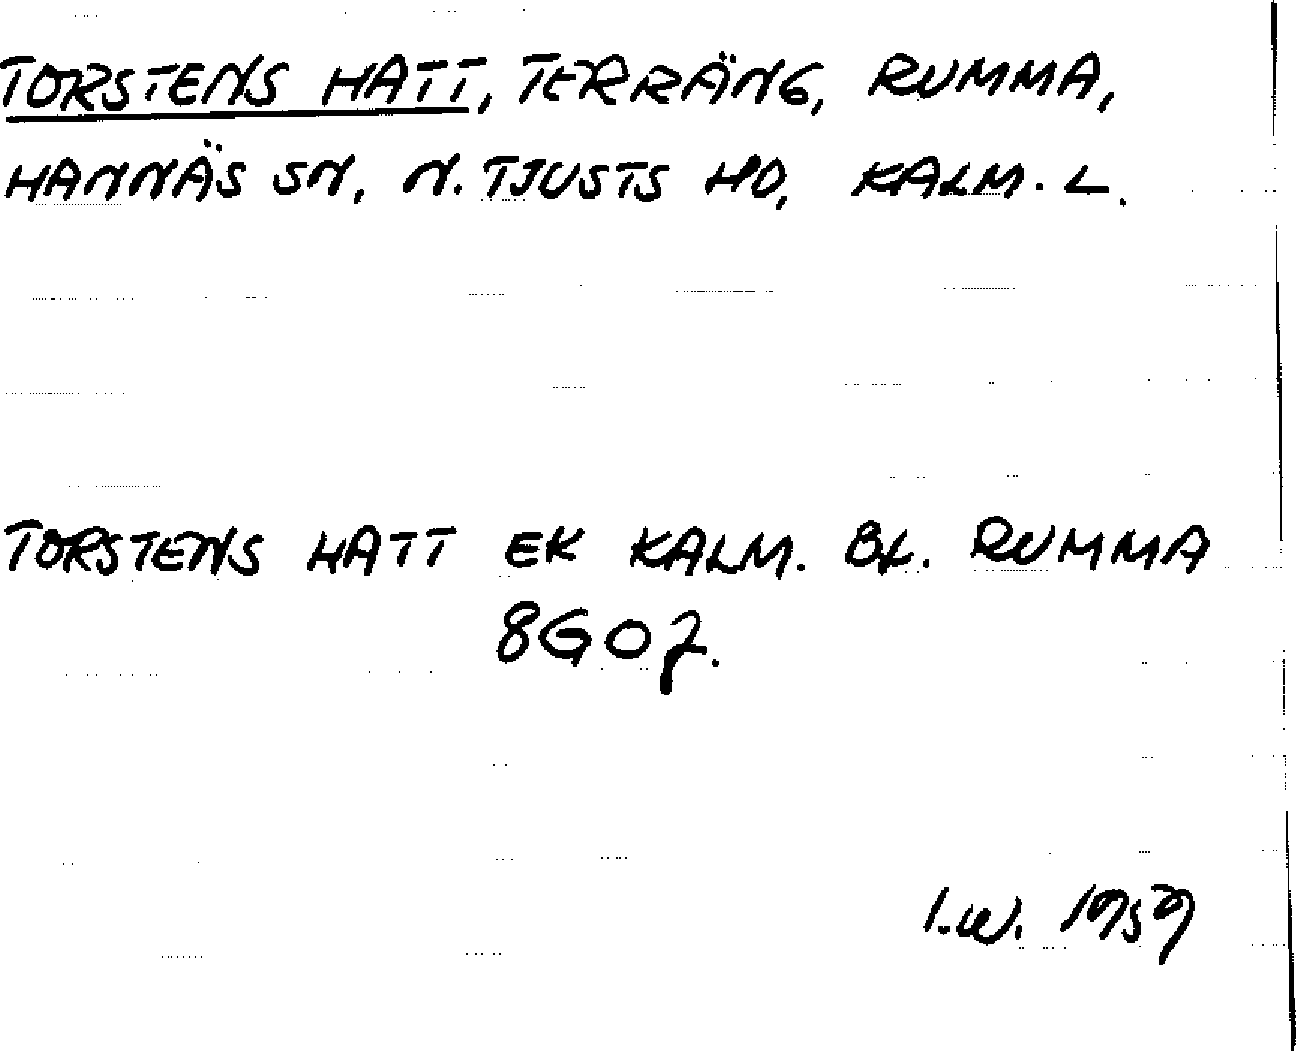 TORSTENS HATT, TERRÄNG, RUMMA,
HANNÄS SN, N. TJUSTS HD, KALM. L.
TORSTENS HATT EK KALM. BL. RUMMA
8G07.
I.W. 1959